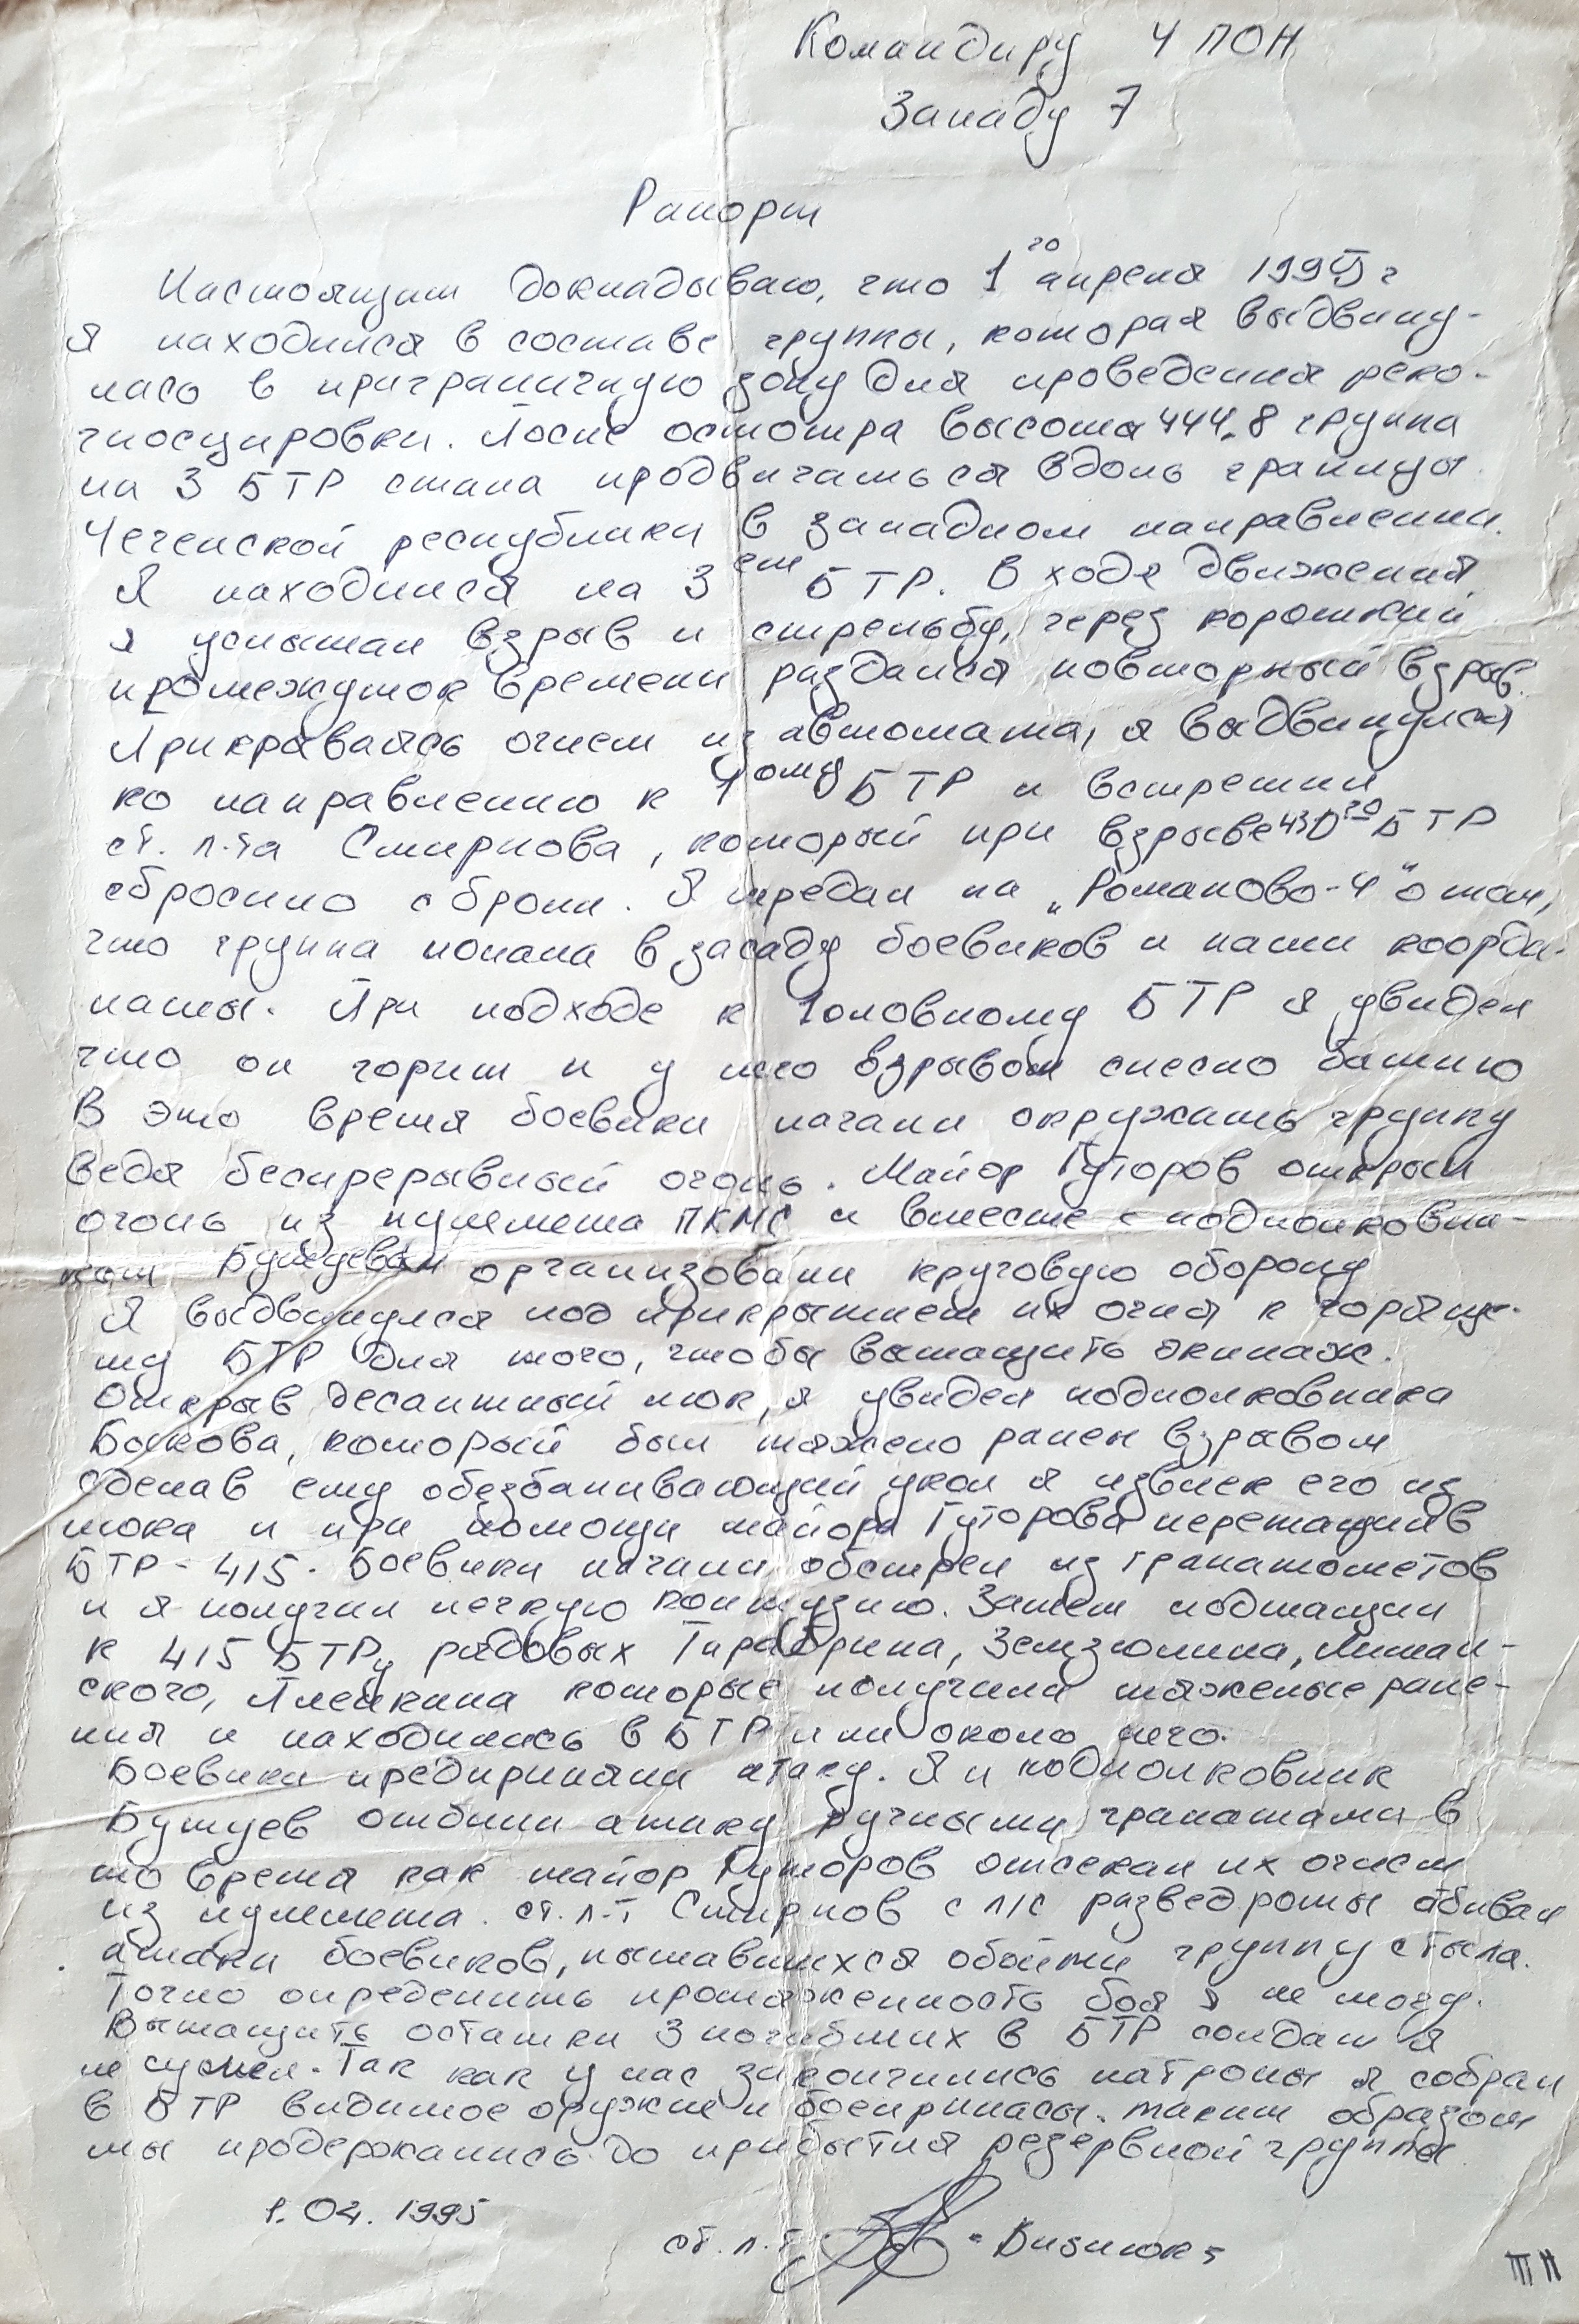 Командиру 4 ПОН
Западу 7
Рапорт
Настоящим докладываю, что 1го апреля 1995 г
я находился в составе группы, которая выдвину-
лась в приграничную зону для проведения реко-
гносцировки. После осмотра высоты 444.8 группа
на 3 БТР стала продвигаться вдоль границы
Чеченской республики в западном направлении.
Я находился на 3ем БТР. В ходе движения
я услышал взрыв и стрельбу, через короткий
промежуток времени раздался повторный взрыв.
Прикрываясь огнем из автомата, я выдвинулся
по направлению к 1ому БТР и встретил
ст. л-та Смирнова, который при взрыве 430го БТР
сбросило с брони. Я передал на „Романово-4" о том,
что группа попала в засаду боевиков и наши коорди-
наты. При подходе к головному БТР я увидел
что он горит и у него взрывом снесло башню
В это время боевики начали окружать группу
ведя беспрерывный огонь. Майор Гуторов открыл
огонь из пулемета ПКМС и вместе с подполковни-
ком организовали круговую оборону
Я выдвинулся под прикрытием их огня к горяще-
му БТР для того, чтобы вытащить экипаж.
Открыв десантный люк, я увидел подполковника
Быкова, который был тяжело ранен взрывом
сделав ему обезбаливающий укол я извлек его из
люка и при помощи майора Гуторова перетащил в
БТР-415. Боевики начали обстрел из гранатометов
и я получил легкую контузию. Затем подтащили
к 415 БТРу рядовых Тарабрина, Земзюлина, Лиман-
ского, Плешкина которые получили тяжелые ране-
ния и находились в БТР или около него.
Боевики предприняли атаку. Я и подполковник
отбили атаку ручными гранатами в
то время как майор Гуторов отсекал их огнем
из пулемета. ст. л-т Смирнов с л/с разведроты отбивал
атаки боевиков, пытавшихся обойти группу с тыла.
Точно определить протяженность боя я не могу.
Вытащить останки 3 погибших в БТР солдат я
не сумел. Так как у нас закончились патроны я собрал
в БТР видимое оружие и боеприпасы. таким образом
мы продержались до прибытия резервной группы
1.04.1995
ст. л-т